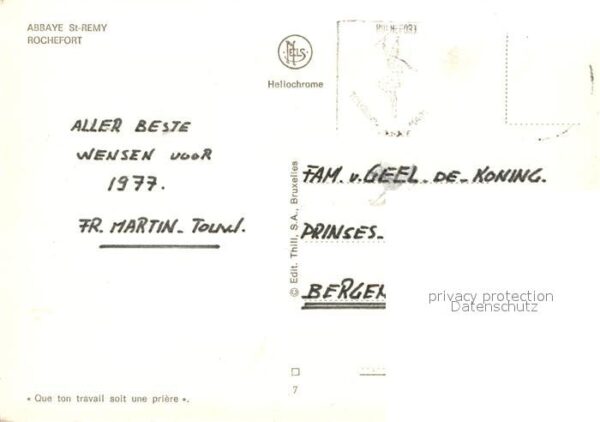 ABBAYE St-REMY
ROCHEFORT
NELS
Heliochrome
ROCHEFORT
ALLER BESTE
WENSEN VOOR
1977.
FR. MARTIN-
FAM. v. GEEL-DE-KONING.
PRINSES-
BERGEN
© Edit. Thill, S.A., Bruxelles
privacy protection
Datenschutz
7
« Que ton travail soit une prière ».